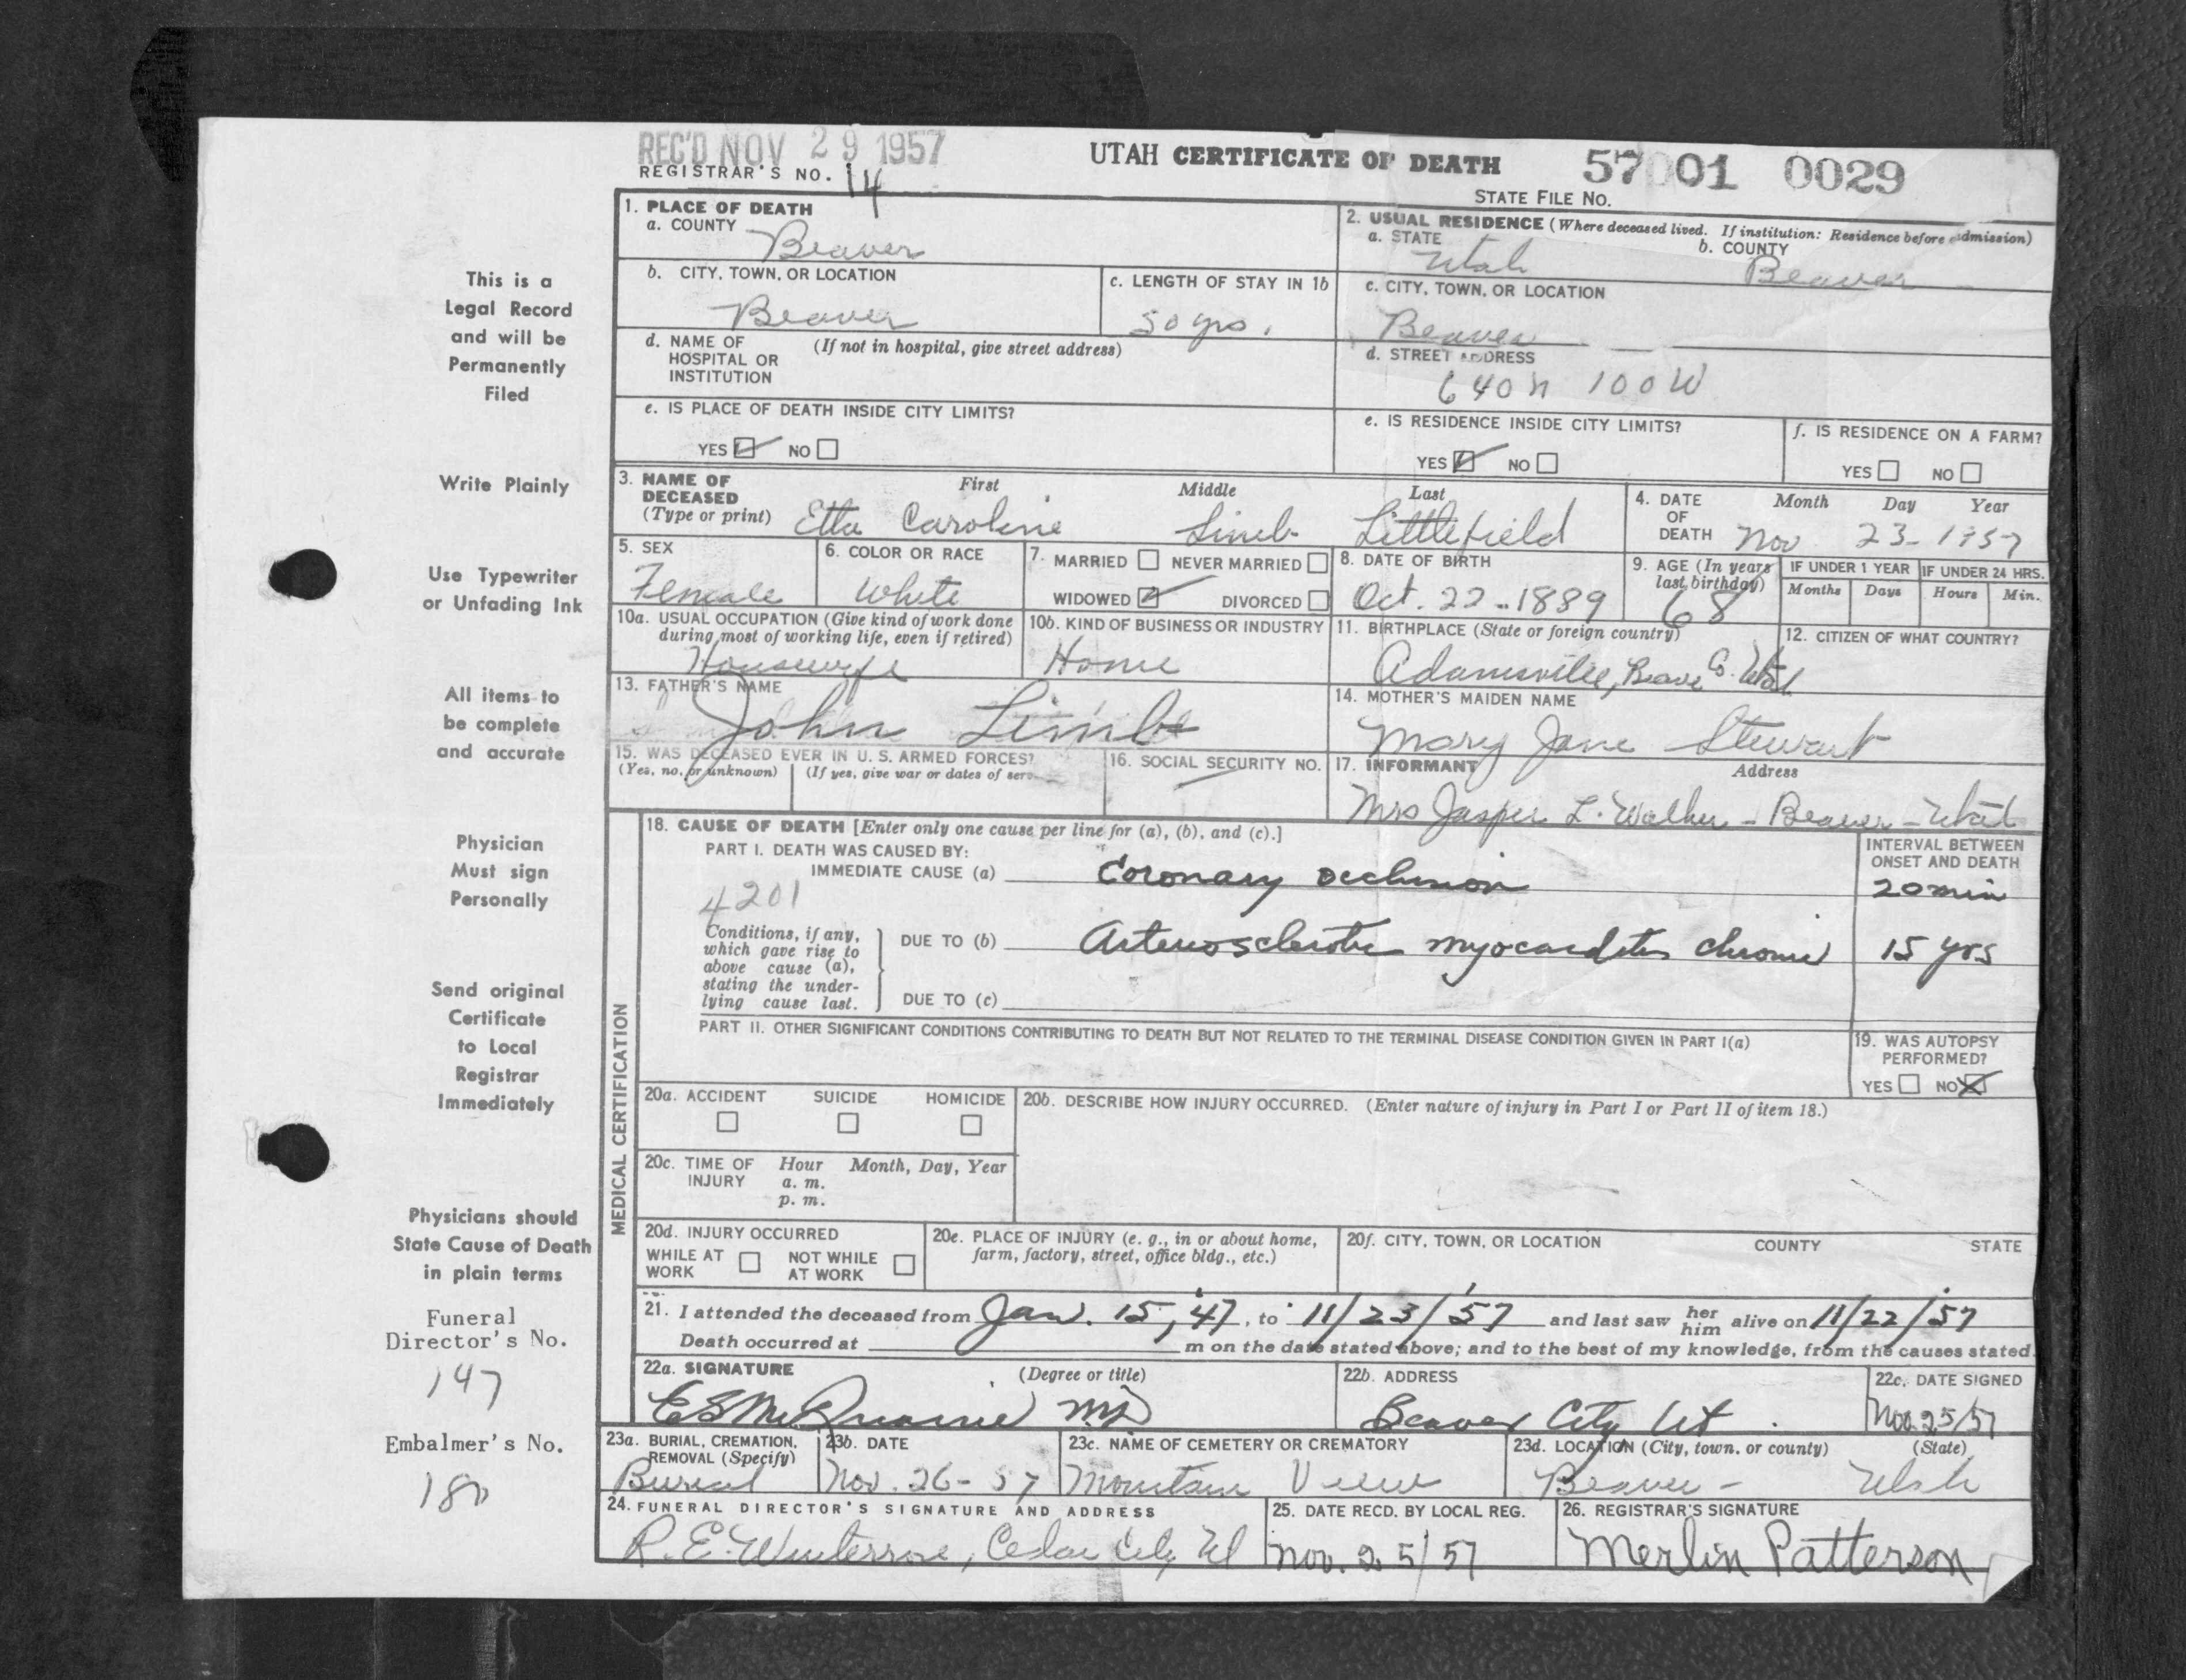 REC'D NOV 29 1957
REGISTRAR'S NO. 14
UTAH CERTIFICATE OF DEATH
57001 0029
STATE FILE NO.
This is a
Legal Record
and will be
Permanently
Filed
Write Plainly
Use Typewriter
or Unfading Ink
All items to
be complete
and accurate
Physician
Must sign
Personally
Send original
Certificate
to Local
Registrar
Immediately
Physicians should
State Cause of Death
in plain terms
Funeral
Director's No.
147
Embalmer's No.
180
1. PLACE OF DEATH
a. COUNTY
Beaver
2. USUAL RESIDENCE (Where deceased lived. If institution: Residence before admission)
a. STATE
Utah
b. COUNTY
Beaver
b. CITY, TOWN, OR LOCATION
Beaver
c. LENGTH OF STAY IN 1b
50 yrs.
c. CITY, TOWN, OR LOCATION
Beaver
d. NAME OF HOSPITAL OR INSTITUTION
(If not in hospital, give street address)
d. STREET ADDRESS
640 N 100 W
e. IS PLACE OF DEATH INSIDE CITY LIMITS?
YES NO
e. IS RESIDENCE INSIDE CITY LIMITS?
YES NO
f. IS RESIDENCE ON A FARM?
YES NO
3. NAME OF DECEASED
(Type or print)
First Middle Last
Etta Caroline Limb Littlefield
4. DATE OF DEATH
Month Day Year
Nov 23-1957
5. SEX
Female
6. COLOR OR RACE
White
7. MARRIED NEVER MARRIED
WIDOWED DIVORCED
8. DATE OF BIRTH
Oct. 22-1889
9. AGE (In years last birthday)
68
IF UNDER 1 YEAR
Months Days
IF UNDER 24 HRS.
Hours Min.
10a. USUAL OCCUPATION (Give kind of work done during most of working life, even if retired)
Housewife
10b. KIND OF BUSINESS OR INDUSTRY
Home
11. BIRTHPLACE (State or foreign country)
Adamsville, Beaver Co. Utah
12. CITIZEN OF WHAT COUNTRY?
13. FATHER'S NAME
John Limb
14. MOTHER'S MAIDEN NAME
Mary Jane Stewart
15. WAS DECEASED EVER IN U. S. ARMED FORCES?
(Yes, no, or unknown) (If yes, give war or dates of
16. SOCIAL SECURITY NO.
17. INFORMANT Address
Mrs Jasper L. Walker - Beaver - Utah
MEDICAL CERTIFICATION
18. CAUSE OF DEATH [Enter only one cause per line for (a), (b), and (c).]
PART I. DEATH WAS CAUSED BY:
IMMEDIATE CAUSE (a) Coronary occlusion
4201
INTERVAL BETWEEN ONSET AND DEATH
20 min
Conditions, if any,
which gave rise to
above cause (a),
stating the under-
lying cause last.
DUE TO (b) Arteriosclerotic myocarditis chronic
15 yrs
DUE TO (c)
PART II. OTHER SIGNIFICANT CONDITIONS CONTRIBUTING TO DEATH BUT NOT RELATED TO THE TERMINAL DISEASE CONDITION GIVEN IN PART I(a)
19. WAS AUTOPSY PERFORMED?
YES NO
20a. ACCIDENT SUICIDE HOMICIDE
20b. DESCRIBE HOW INJURY OCCURRED. (Enter nature of injury in Part I or Part II of item 18.)
20c. TIME OF INJURY
Hour Month, Day, Year
a. m.
p. m.
20d. INJURY OCCURRED
WHILE AT WORK NOT WHILE AT WORK
20e. PLACE OF INJURY (e. g., in or about home, farm, factory, street, office bldg., etc.)
20f. CITY, TOWN, OR LOCATION COUNTY STATE
21. I attended the deceased from Jan. 15, '47, to 11/23/'57 and last saw her him alive on 11/22/'57
Death occurred at m on the date stated above; and to the best of my knowledge, from the causes stated.
22a. SIGNATURE (Degree or title)
E S McQuarrie MD
22b. ADDRESS
Beaver City Ut
22c. DATE SIGNED
Nov. 25/57
23a. BURIAL, CREMATION, REMOVAL (Specify)
Burial
23b. DATE
Nov. 26-57
23c. NAME OF CEMETERY OR CREMATORY
Mountain View
23d. LOCATION (City, town, or county) (State)
Beaver - Utah
24. FUNERAL DIRECTOR'S SIGNATURE AND ADDRESS
R. E. Winterrose, Cedar City, Ut
25. DATE RECD. BY LOCAL REG.
Nov. 25/57
26. REGISTRAR'S SIGNATURE
Merlin Patterson